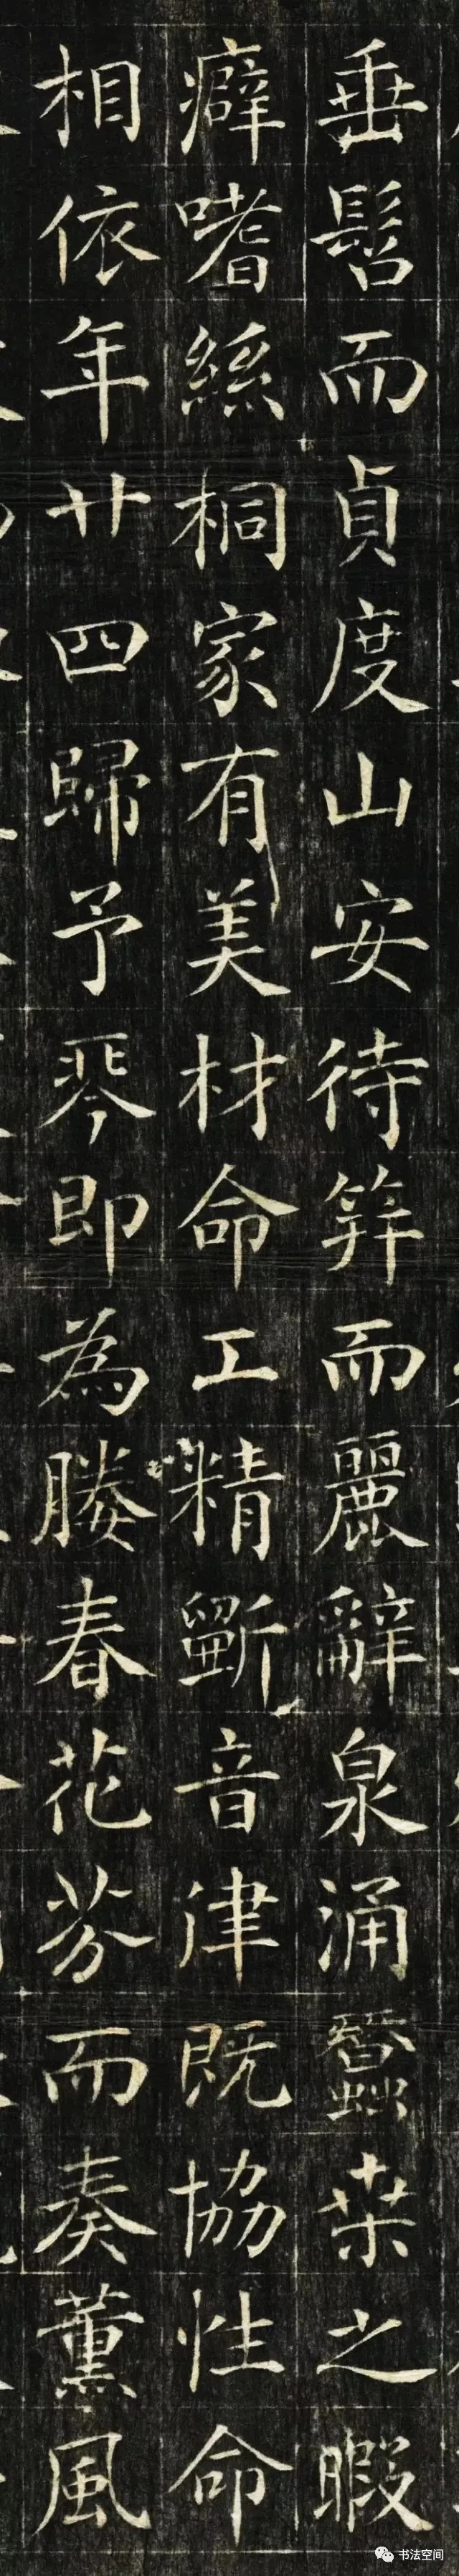 垂髫而貞度山安待笄而麗辭泉涌蠶桒之暇
癖嗜絲桐家有美材命工精斵音律既協性命
相依年廿四歸予琴即為媵春花芬而奏薰風
书法空间